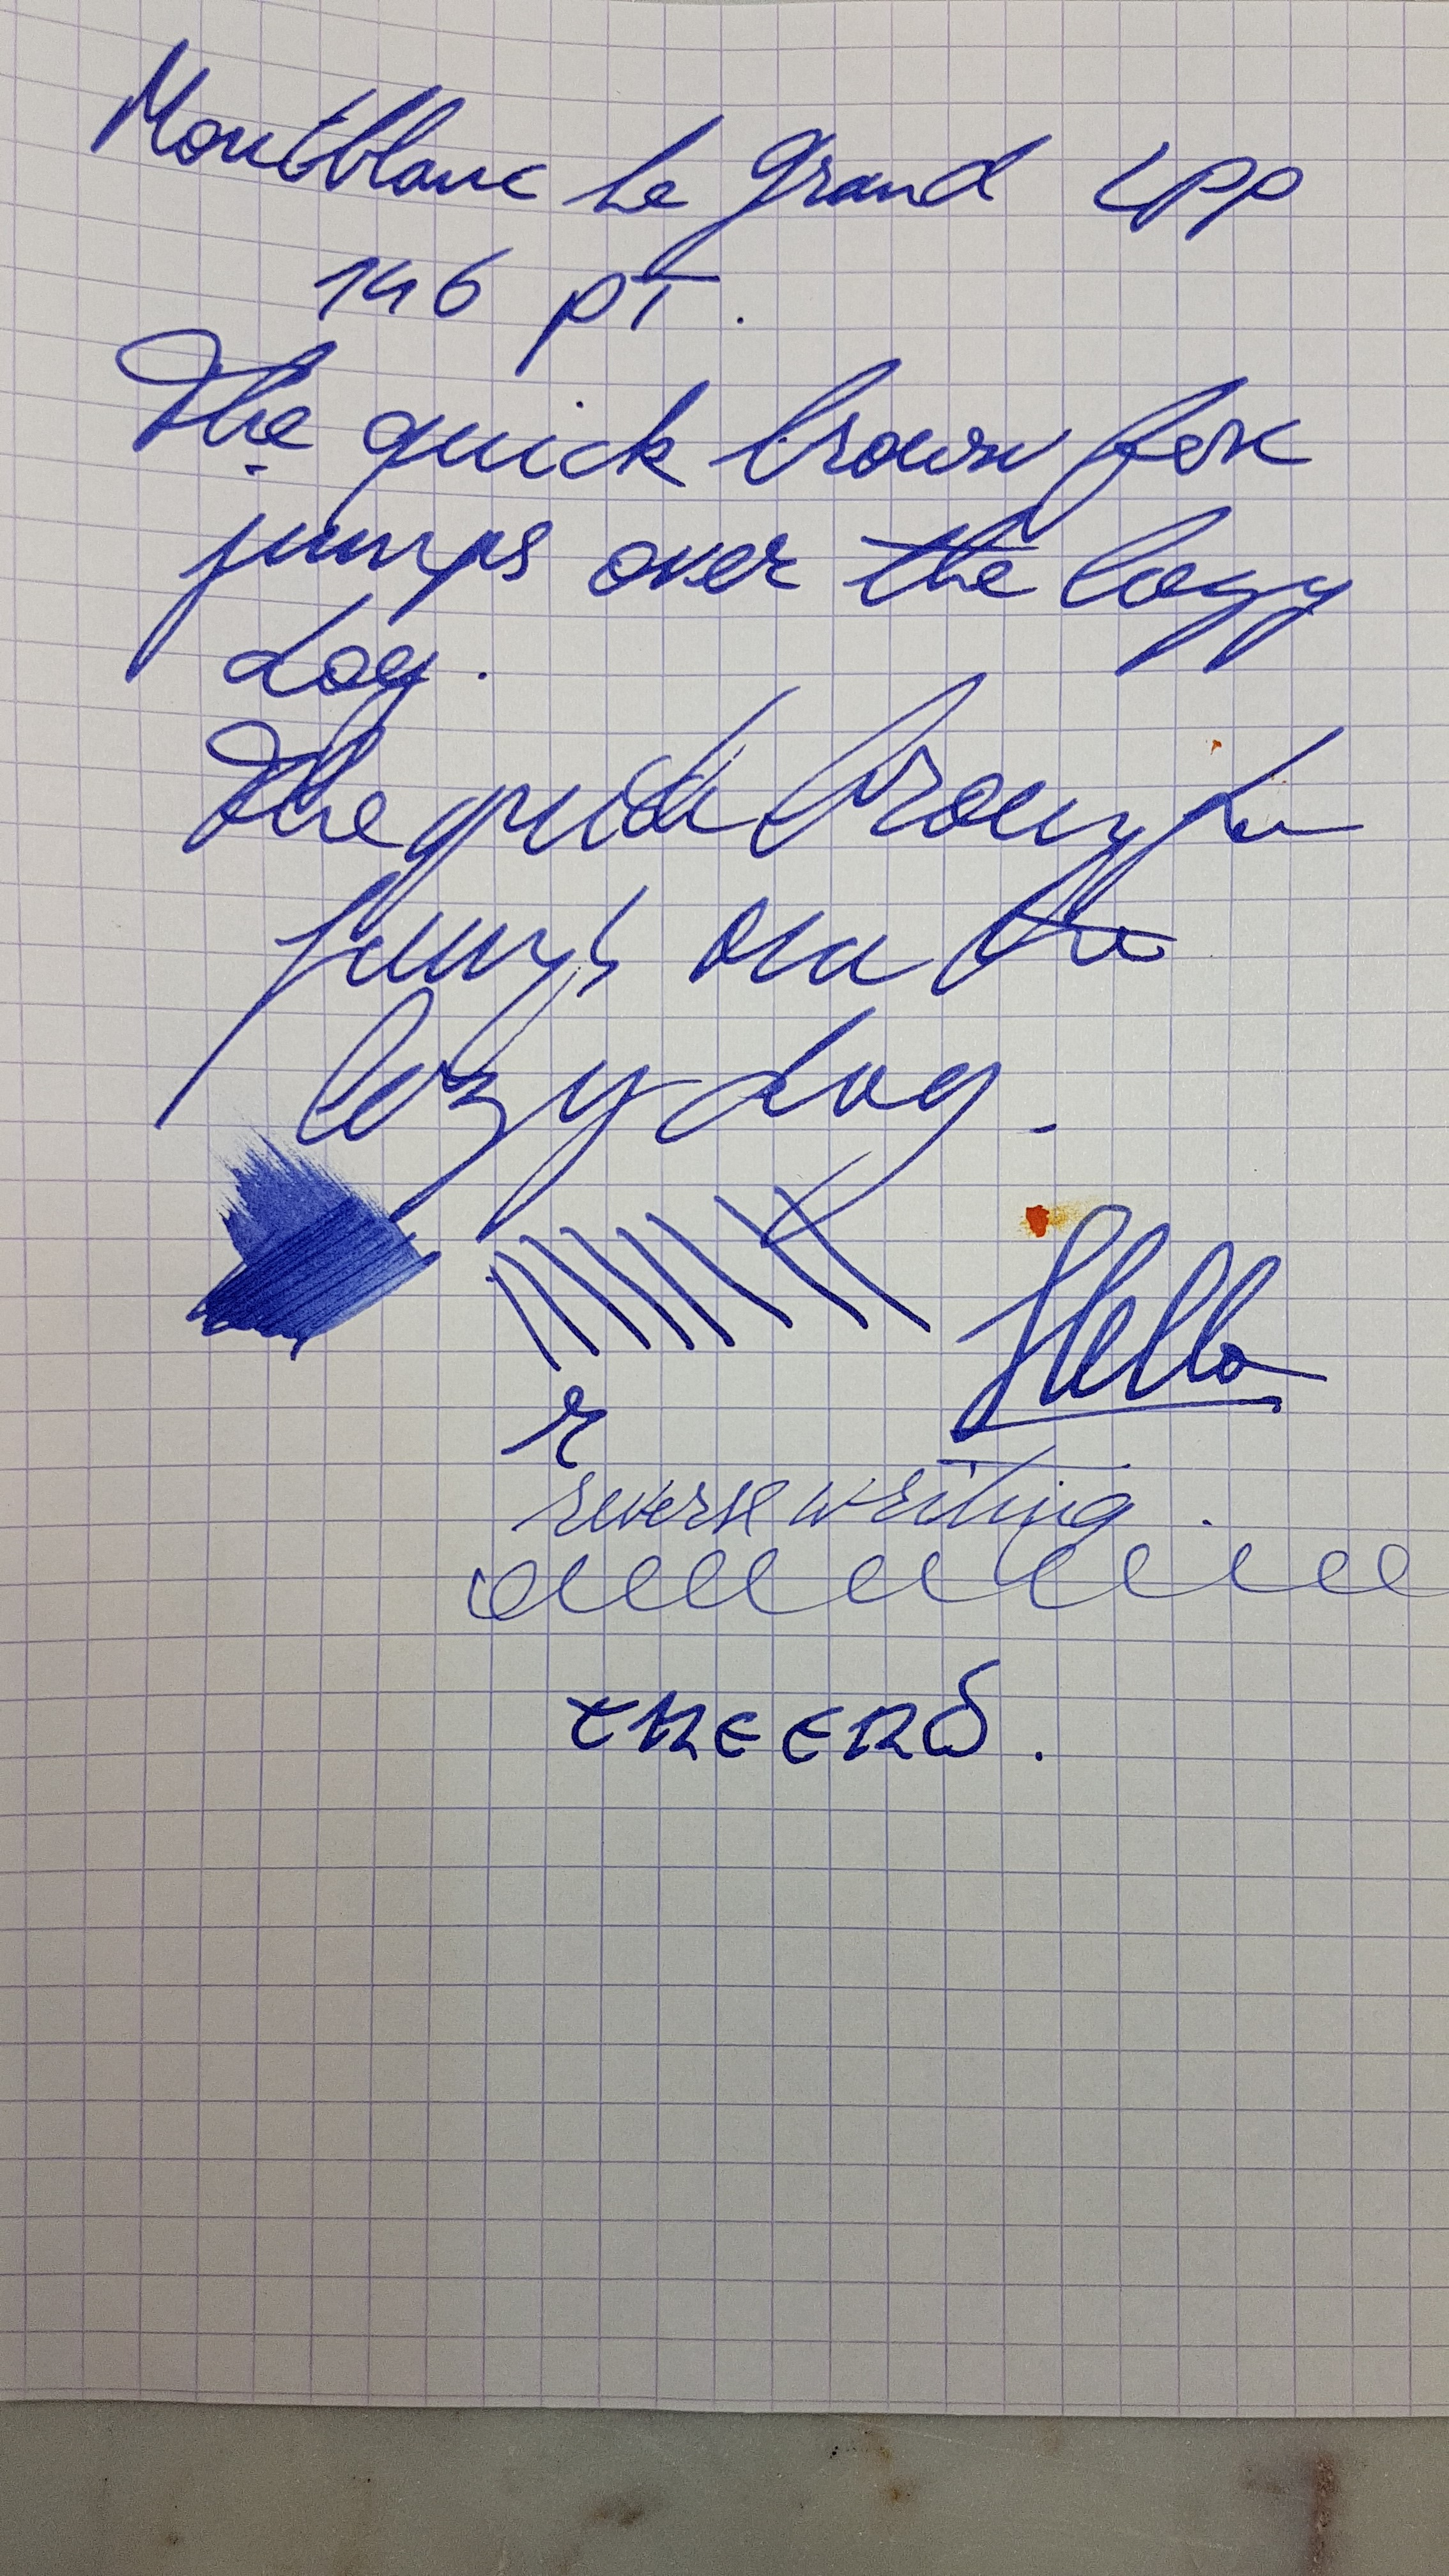 Montblanc Le Grand LPP
146 PT.
The quick brown fox
jumps over the lazy
dog.
The quick brown fox
jumps over the
lazy dog.
Hello
r
reverse writing.
THE END.